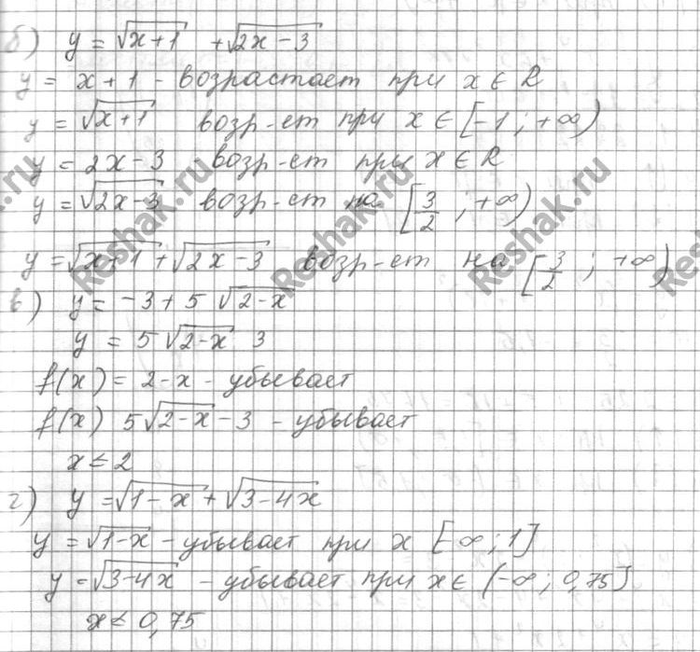 б) y = √x+1 + √2x-3
y = x+1 - возрастает при x ∈ R
y = √x+1 возр-ет при x ∈ [-1; +∞)
y = 2x-3 возр-ет при x ∈ R
y = √2x-3 возр-ет на [3/2; +∞)
y = √x+1 + √2x-3 возр-ет на [3/2; +∞)
в) y = -3+5 √2-x
y = 5 √2-x 3
f(x) = 2-x - убывает
f(x) 5√2-x -3 - убывает
x ≤ 2
г) y = √1-x + √3-4x
y = √1-x - убывает при x [-∞; 1]
y = √3-4x - убывает при x ∈ (-∞; 0,75]
x ≤ 0,75
Reshak.ru
Reshak.ru
Reshak.ru